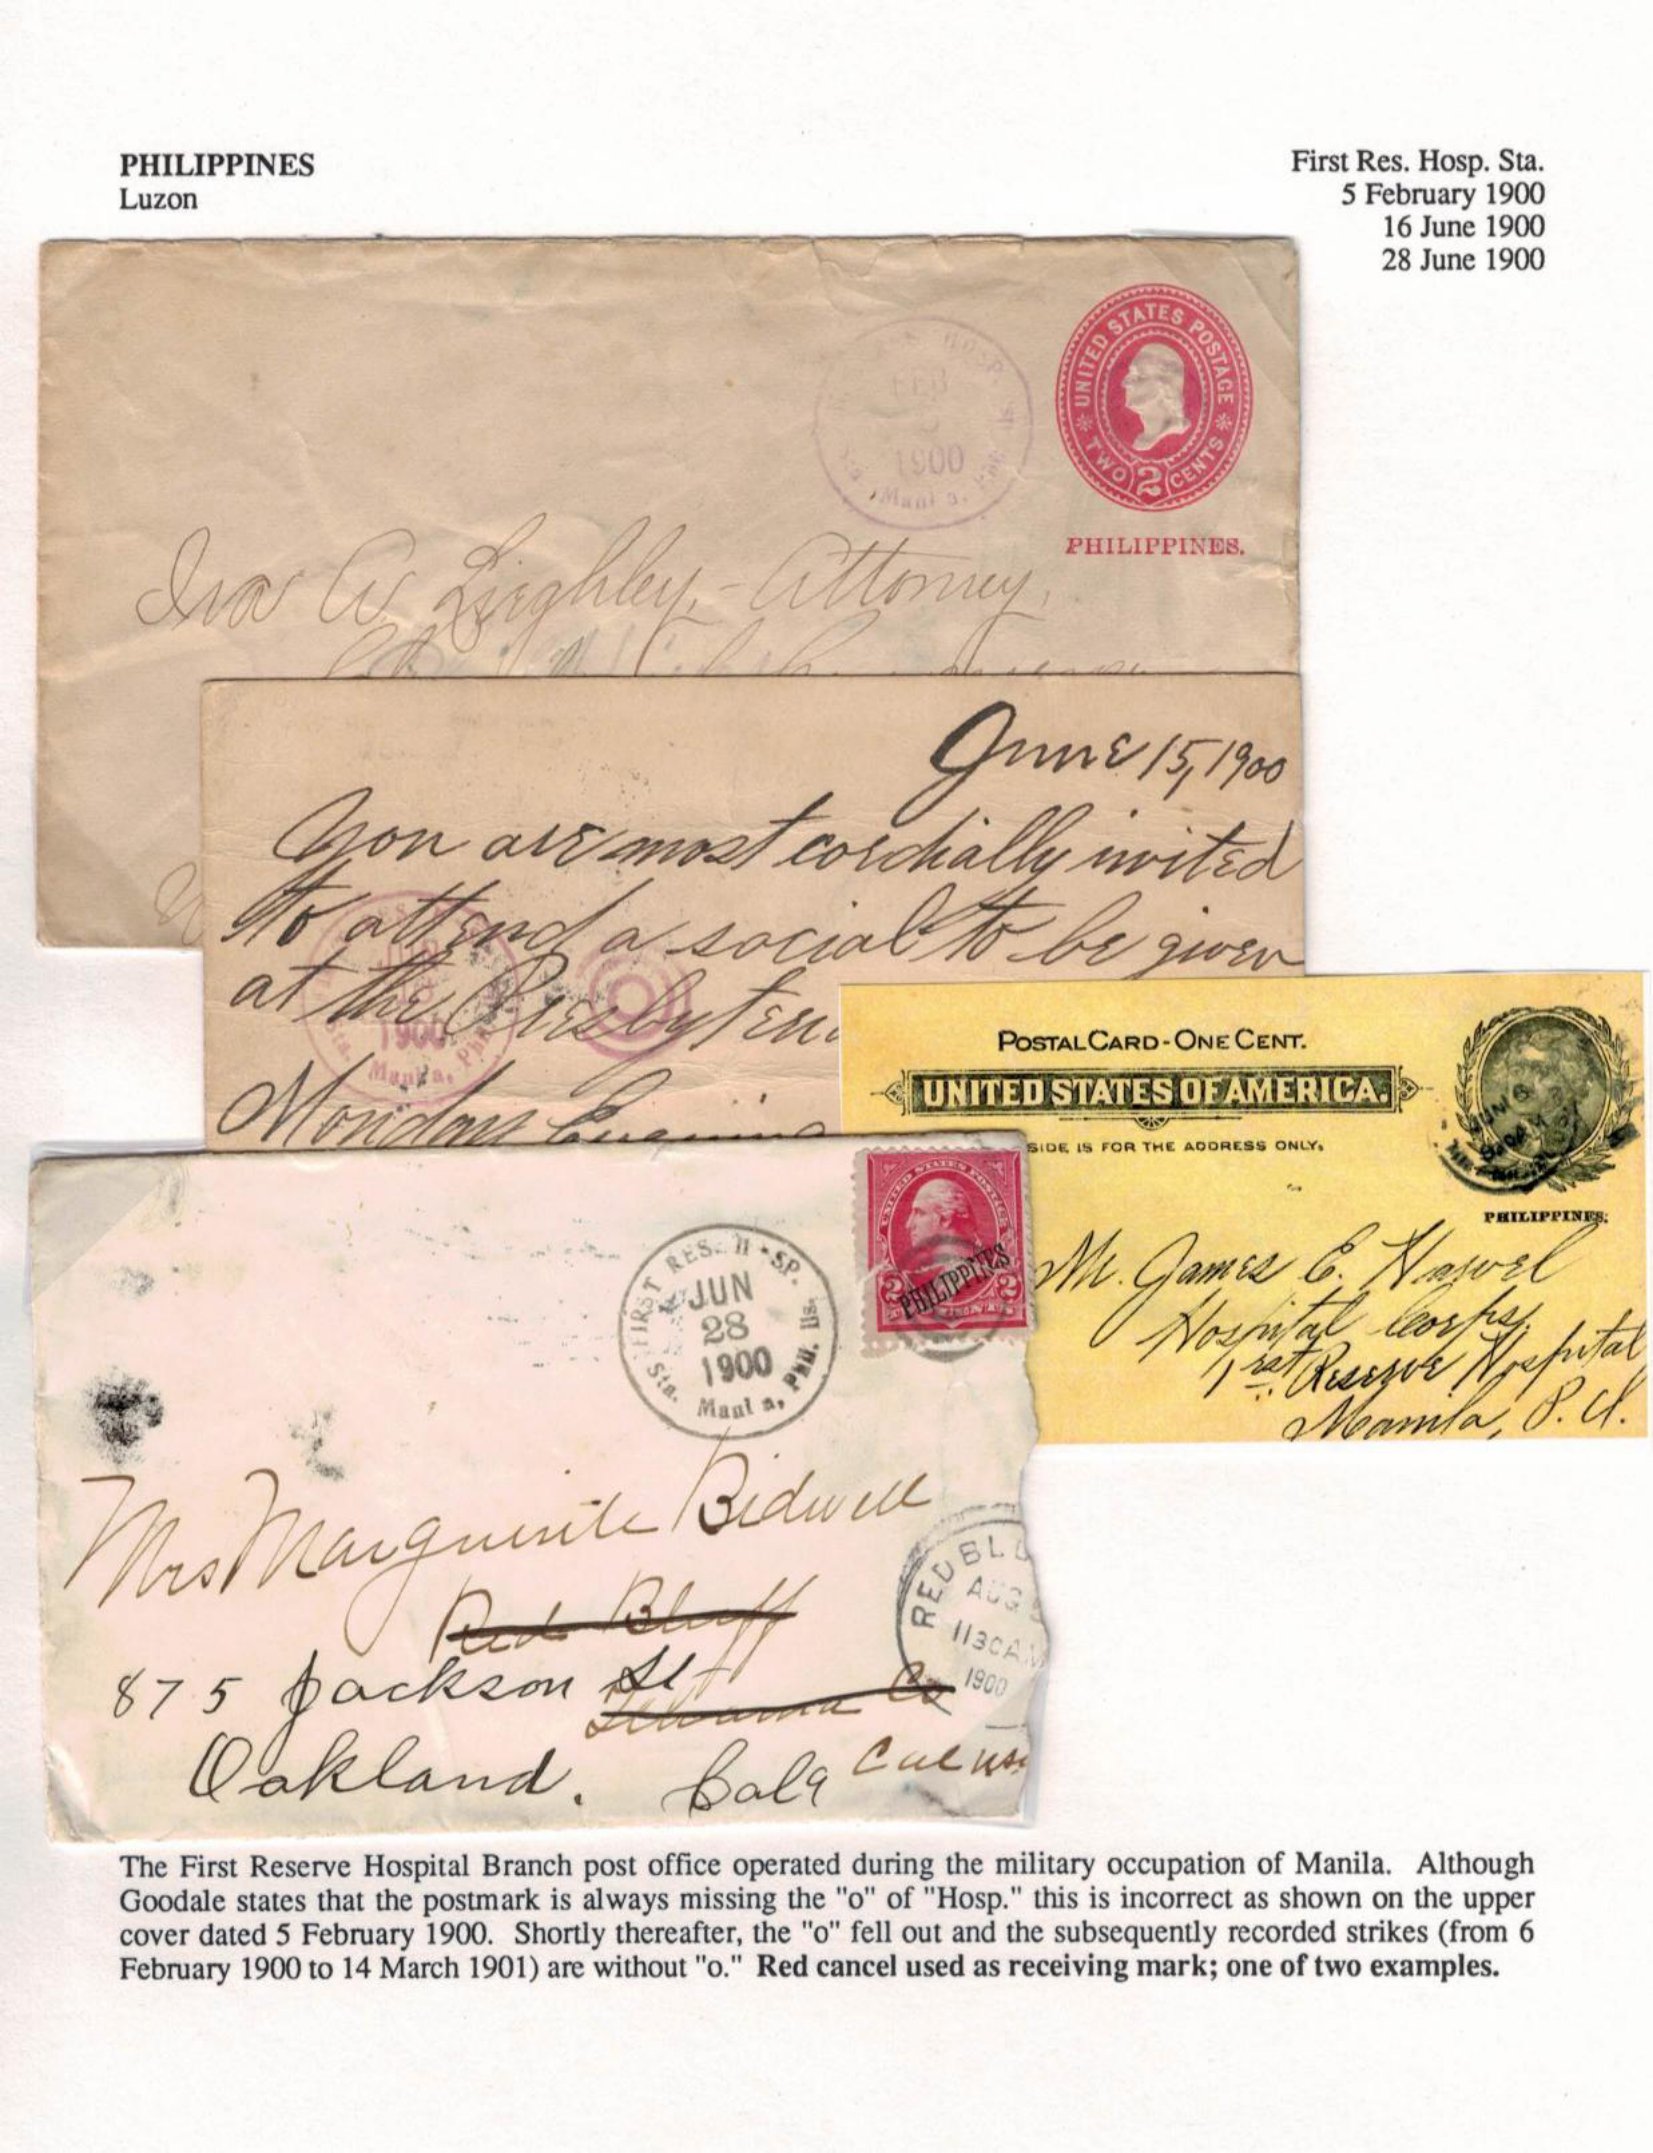 PHILIPPINES
Luzon
First Res. Hosp. Sta.
5 February 1900
16 June 1900
28 June 1900
HOSP.
FEB
1900
UNITED STATES POSTAGE
TWO 2 CENTS
PHILIPPINES.
Ira A Leighley, - Attorney,
June 15, 1900
You are most cordially invited
to attend a social to be given
at the
1900
Monday Evening
POSTAL CARD - ONE CENT.
UNITED STATES OF AMERICA.
SIDE IS FOR THE ADDRESS ONLY.
PHILIPPINES.
Mr. James E. Haswel
Hospital Corps,
1rst Reserve Hospital
Manila, P. I.
FIRST RES. H SP.
JUN
28
1900
Sta. Manl a, Phil. Ils.
UNITED STATES POSTAGE
2 2
PHILIPPINES
Mrs Marguerite Bidwell
Red Bluff
875 Jackson St
Tehama Co
Oakland. Cala
Cal
RED BLU
AUG
1130AM
1900
The First Reserve Hospital Branch post office operated during the military occupation of Manila. Although
Goodale states that the postmark is always missing the "o" of "Hosp." this is incorrect as shown on the upper
cover dated 5 February 1900. Shortly thereafter, the "o" fell out and the subsequently recorded strikes (from 6
February 1900 to 14 March 1901) are without "o." Red cancel used as receiving mark; one of two examples.